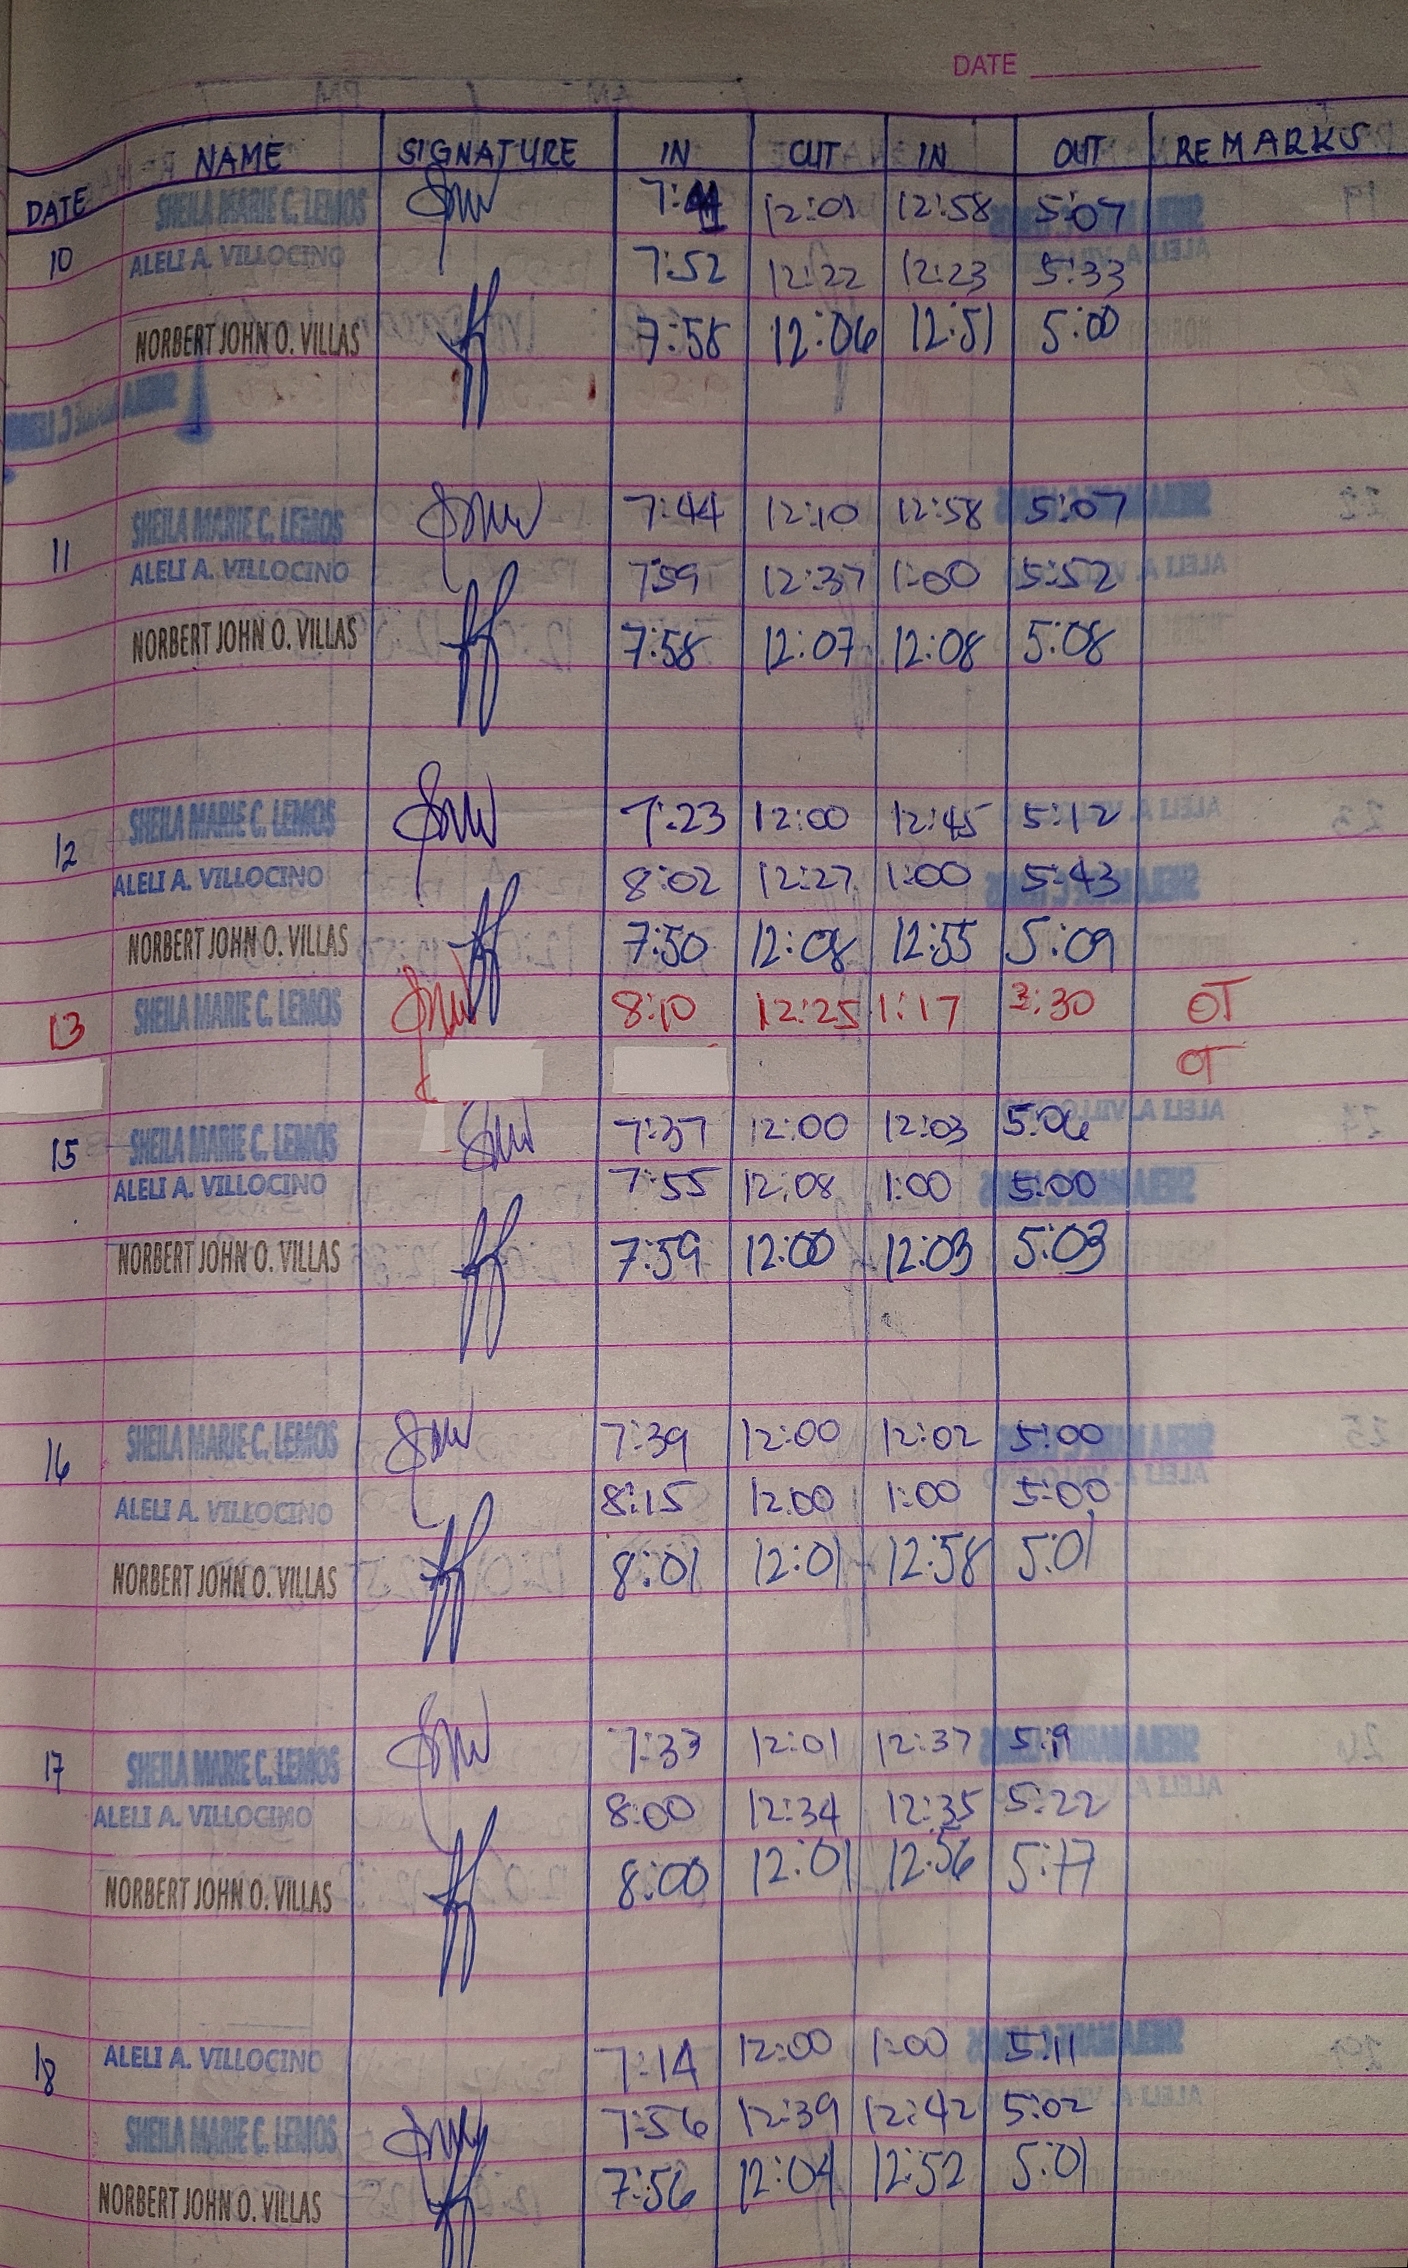 DATE
NAME SIGNATURE IN OUT IN OUT REMARKS
DATE
SHEILA MARIE C. LEMOS 12:01 12:58 5:07
10 ALELI A. VILLOCINO 7:52 12:22 12:23 5:33
NORBERT JOHN O. VILLAS 7:58 12:06 12:51 5:00
SHEILA MARIE C. LEMOS 7:44 12:10 12:58 5:07
11 ALELI A. VILLOCINO 7:59 12:37 1:00 5:52
NORBERT JOHN O. VILLAS 7:58 12:07 12:08 5:08
SHEILA MARIE C. LEMOS 7:23 12:00 12:45 5:12
12 ALELI A. VILLOCINO 8:02 12:27 1:00 5:43
NORBERT JOHN O. VILLAS 7:50 12:08 12:55 5:09
13 SHEILA MARIE C. LEMOS 8:10 12:25 1:17 3:30 OT
OT
15 SHEILA MARIE C. LEMOS 7:37 12:00 12:03 5:06
ALELI A. VILLOCINO 7:55 12:08 1:00 5:00
NORBERT JOHN O. VILLAS 7:59 12:00 12:03 5:03
16 SHEILA MARIE C. LEMOS 7:39 12:00 12:02 5:00
ALELI A. VILLOCINO 8:15 12:00 1:00 5:00
NORBERT JOHN O. VILLAS 8:01 12:01 12:58 5:01
17 SHEILA MARIE C. LEMOS 7:33 12:01 12:37
ALELI A. VILLOCINO 8:00 12:34 12:35 5:22
NORBERT JOHN O. VILLAS 8:00 12:01 12:56 5:17
18 ALELI A. VILLOCINO 7:14 12:00 1:00 5:11
SHEILA MARIE C. LEMOS 7:56 12:39 12:42 5:02
NORBERT JOHN O. VILLAS 7:56 12:04 12:52 5:01